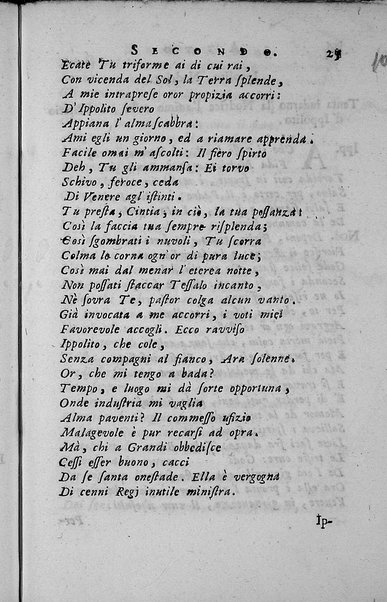 SECONDO. 25
Ecate Tu triforme ai di cui rai,
Con vicenda del Sol, la Terra splende,
A mie intraprese oror propizia accorri:
D'Ippolito severo
Appiana l'alma scabbra:
Ami egli un giorno, ed a riamare apprenda.
Facile omai m'ascolti: Il fiero spirto
Deh, Tu gli ammansa: Ei torvo
Schivo, feroce, ceda
Di Venere agl'istinti.
Tu presta, Cintia, in ciò, la tua possanza:
Così la faccia tua sempre risplenda;
Così sgombrati i nuvoli, Tu scorra
Colma le corna ogn'or di pura luce;
Così mai dal menar l'eterea notte,
Non possati staccar Tessalo incanto,
Nè sovra Te, pastor colga alcun vanto.
Già invocata a me accorri, i voti miei
Favorevole accogli. Ecco ravviso
Ippolito, che cole,
Senza compagni al fianco, Ara solenne.
Or, che mi tengo a bada?
Tempo, e luogo mi dà sorte opportuna,
Onde industria mi vaglia
Alma paventi? Il commesso ufizio
Malagevole è pur recarsi ad opra.
Mà, chi a Grandi obbedisce
Cessi esser buono, cacci
Da se santa onestade. Ella è vergogna
Di cenni Regj inutile ministra.
Ip-